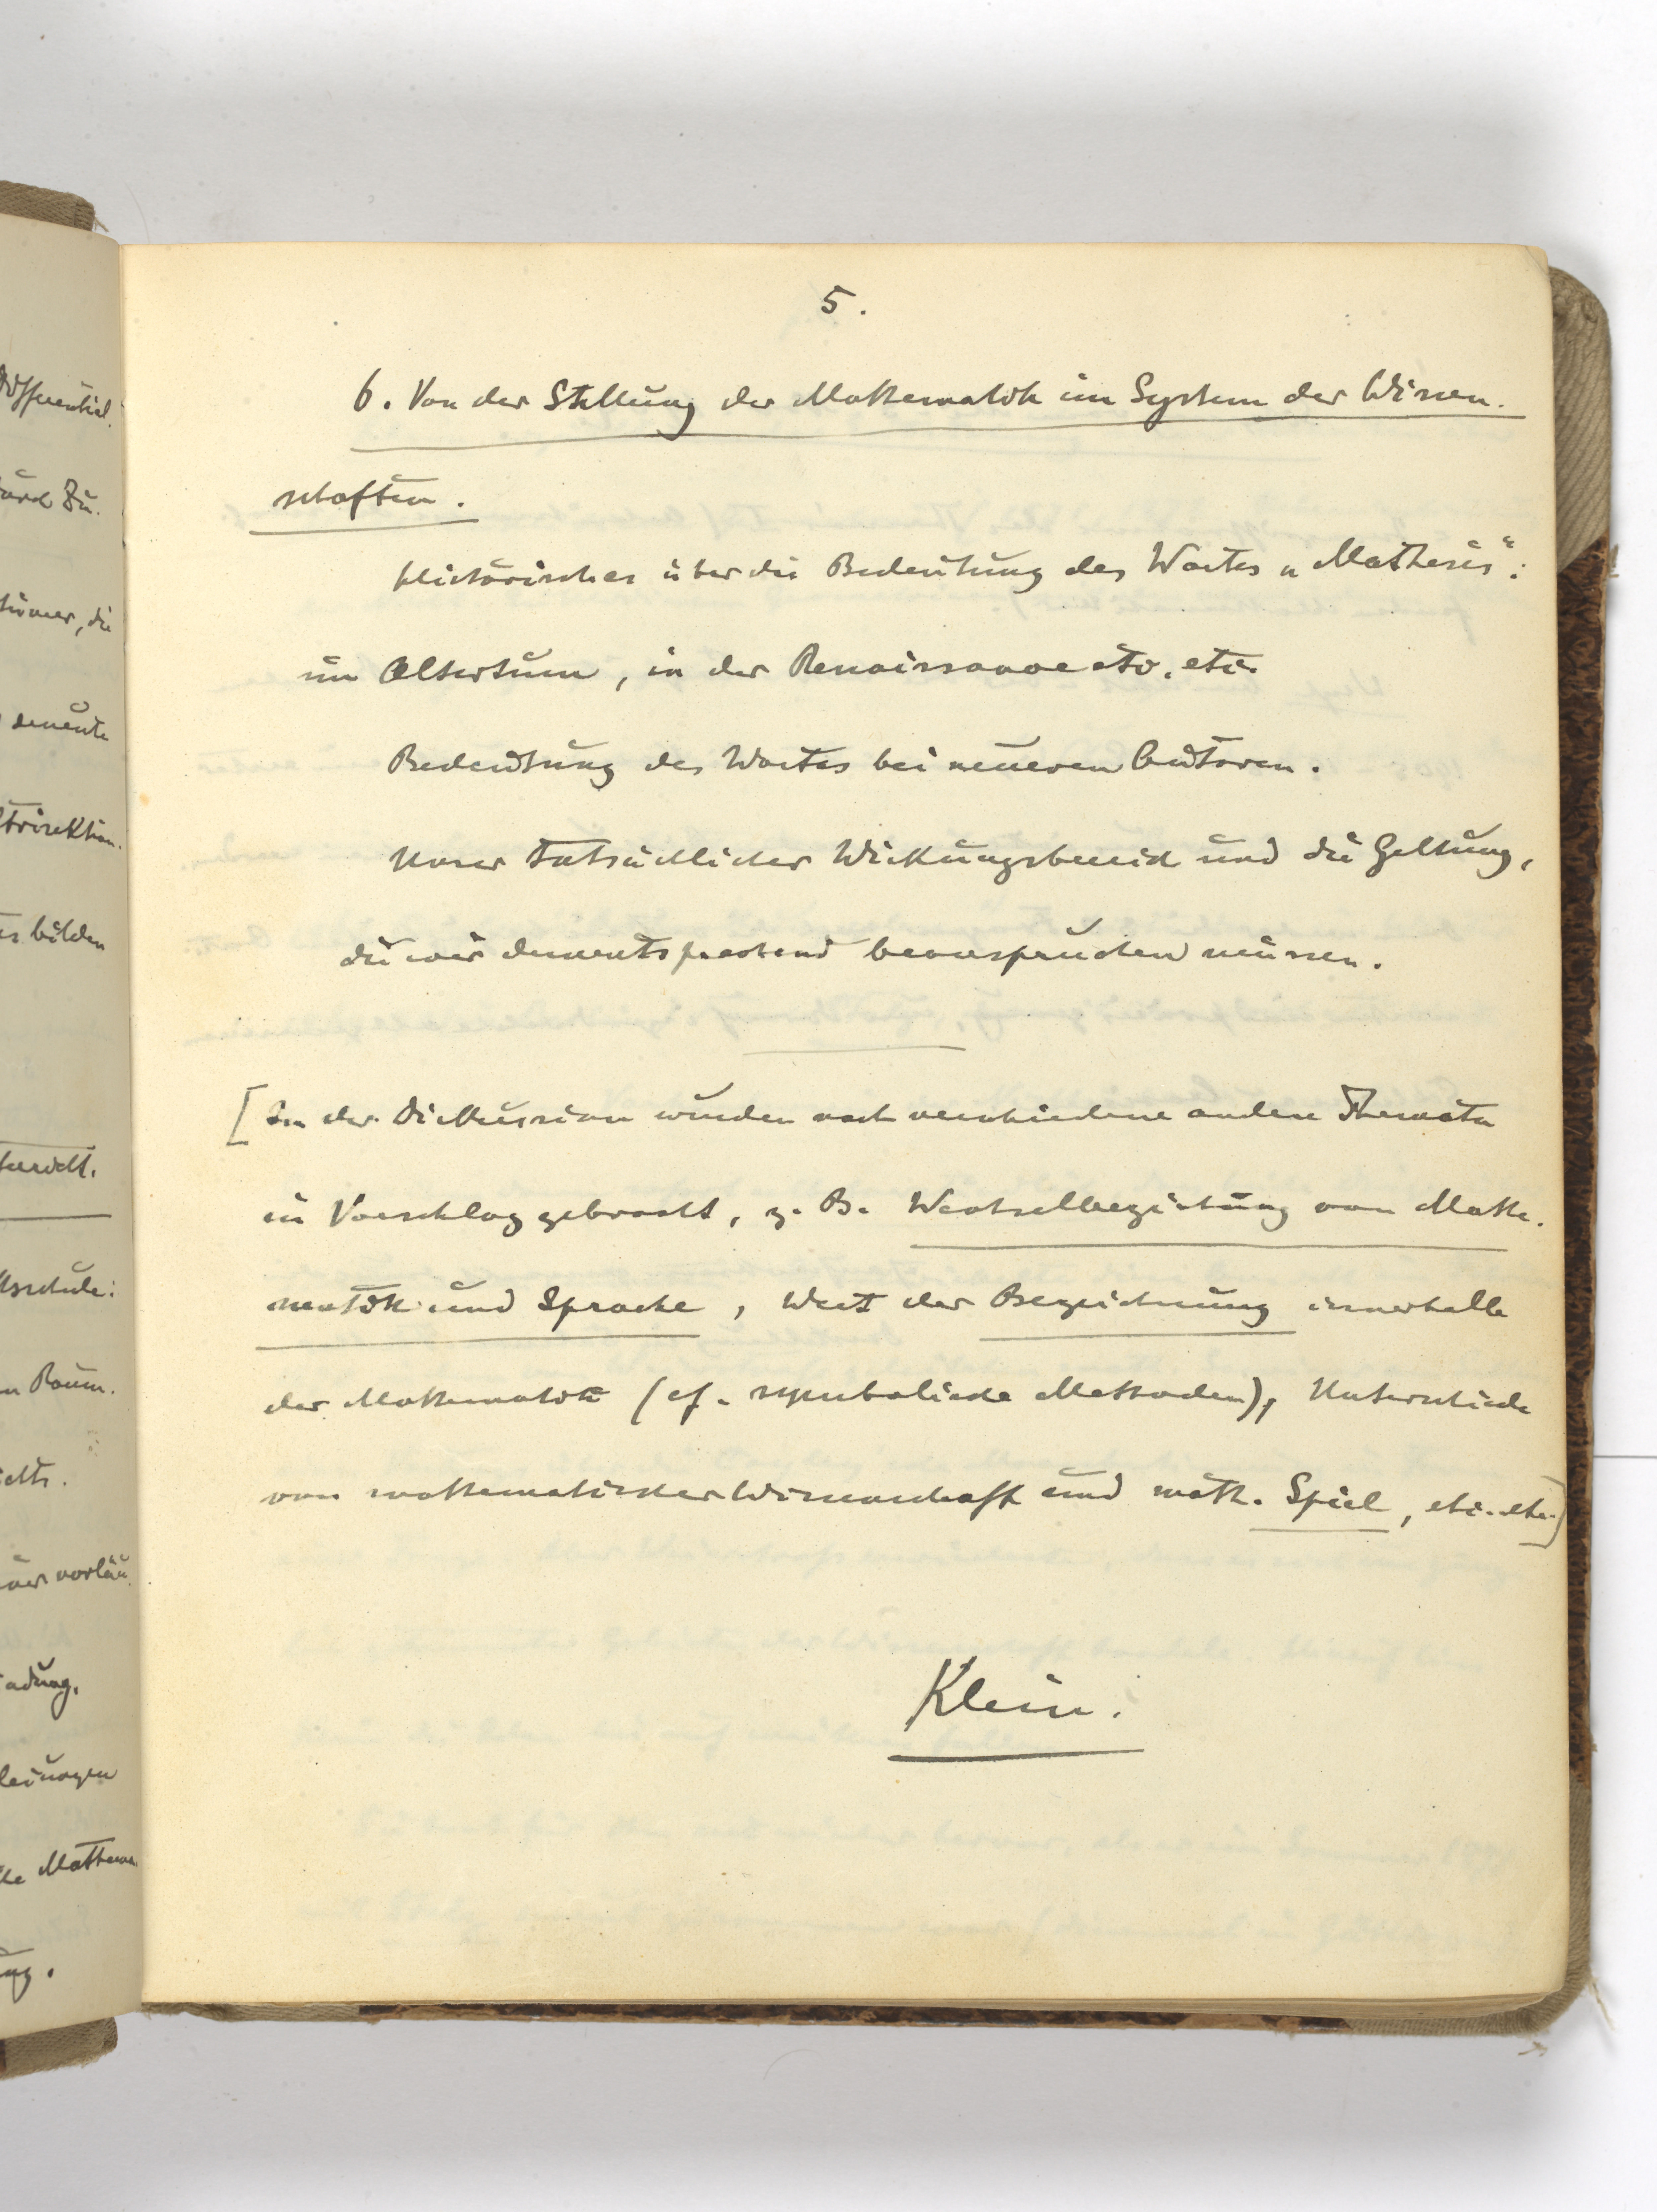 Differential.
durch Zu.
tümer, die
demente
trisektion.
es bilden
Raum.
vorläu.
adung.
leiungen
Mathema.
5.
6. Von der Stellung der Mathematik im System der Wissen.
schaften.
Historisches über die Bedeutung des Wortes „Mathesis“:
im Altertum, in der Renaissance etc. etc.
Bedeutung des Wortes bei neueren Autoren.
Unser tatsächlicher Wirkungsbereich und die Geltung,
die wir dementsprechend beanspruchen müssen.
[In der Diskussion wurden noch verschiedene andere Themata
in Vorschlag gebracht, z. B. Wechselbeziehung von Mathe.
matik und Sprache, Wert der Bezeichnung innerhalb
der Mathematik (cf. symbolische Methoden), Unterschiede
von mathematischer Wissenschaft und math. Spiel, etc. etc.]
Klein.